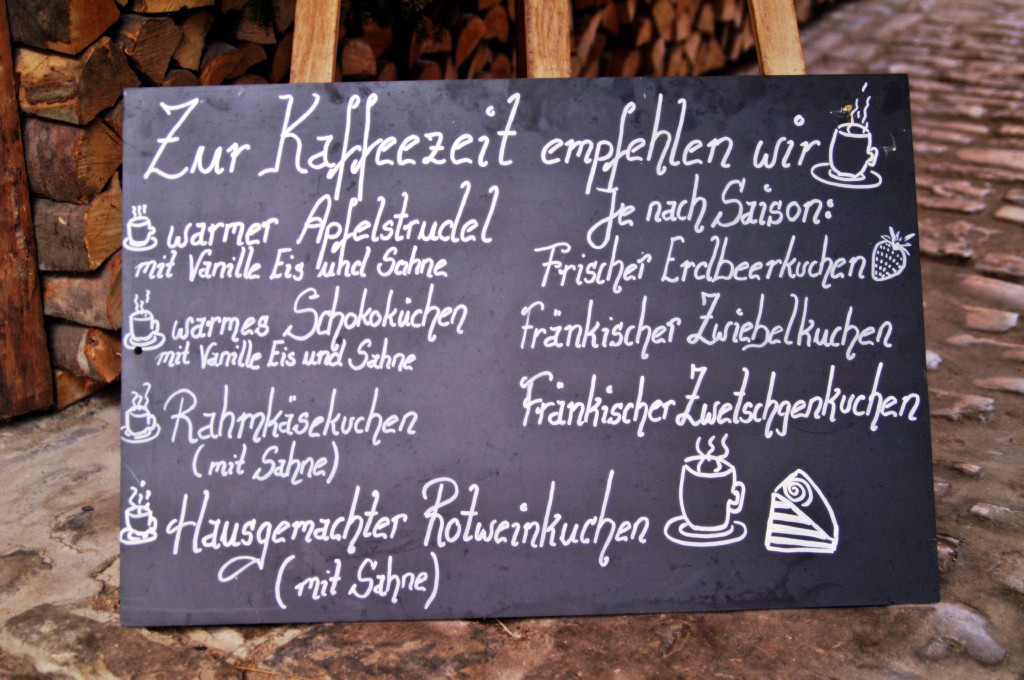 Zur Kaffeezeit empfehlen wir
warmer Apfelstrudel
mit Vanille Eis und Sahne
warmes Schokoküchen
mit Vanille Eis und Sahne
Rahmkäsekuchen
(mit Sahne)
Hausgemachter Rotweinkuchen
(mit Sahne)
Je nach Saison:
Frischer Erdbeerkuchen
Fränkischer Zwiebelkuchen
Fränkischer Zwetschgenkuchen